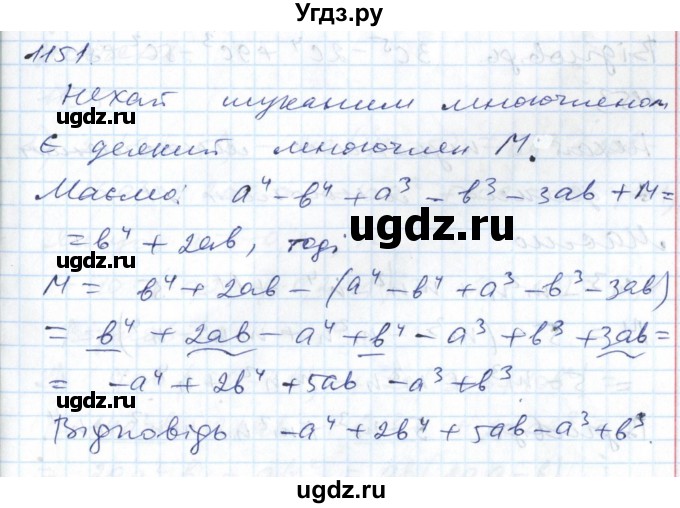 Угдз.ру
1151
Нехай шуканим многочленом
є деякий многочлен M.
Маємо: a⁴ - b⁴ + a³ - b³ - 3ab + M =
= b⁴ + 2ab, тоді
M = b⁴ + 2ab - (a⁴ - b⁴ + a³ - b³ - 3ab)
= b⁴ + 2ab - a⁴ + b⁴ - a³ + b³ + 3ab =
= -a⁴ + 2b⁴ + 5ab - a³ + b³.
Відповідь -a⁴ + 2b⁴ + 5ab - a³ + b³.
ugdz.ru
ugdz.ru
ugdz.ru
ugdz.ru
ugdz.ru
ugdz.ru
ugdz.ru
ugdz.ru